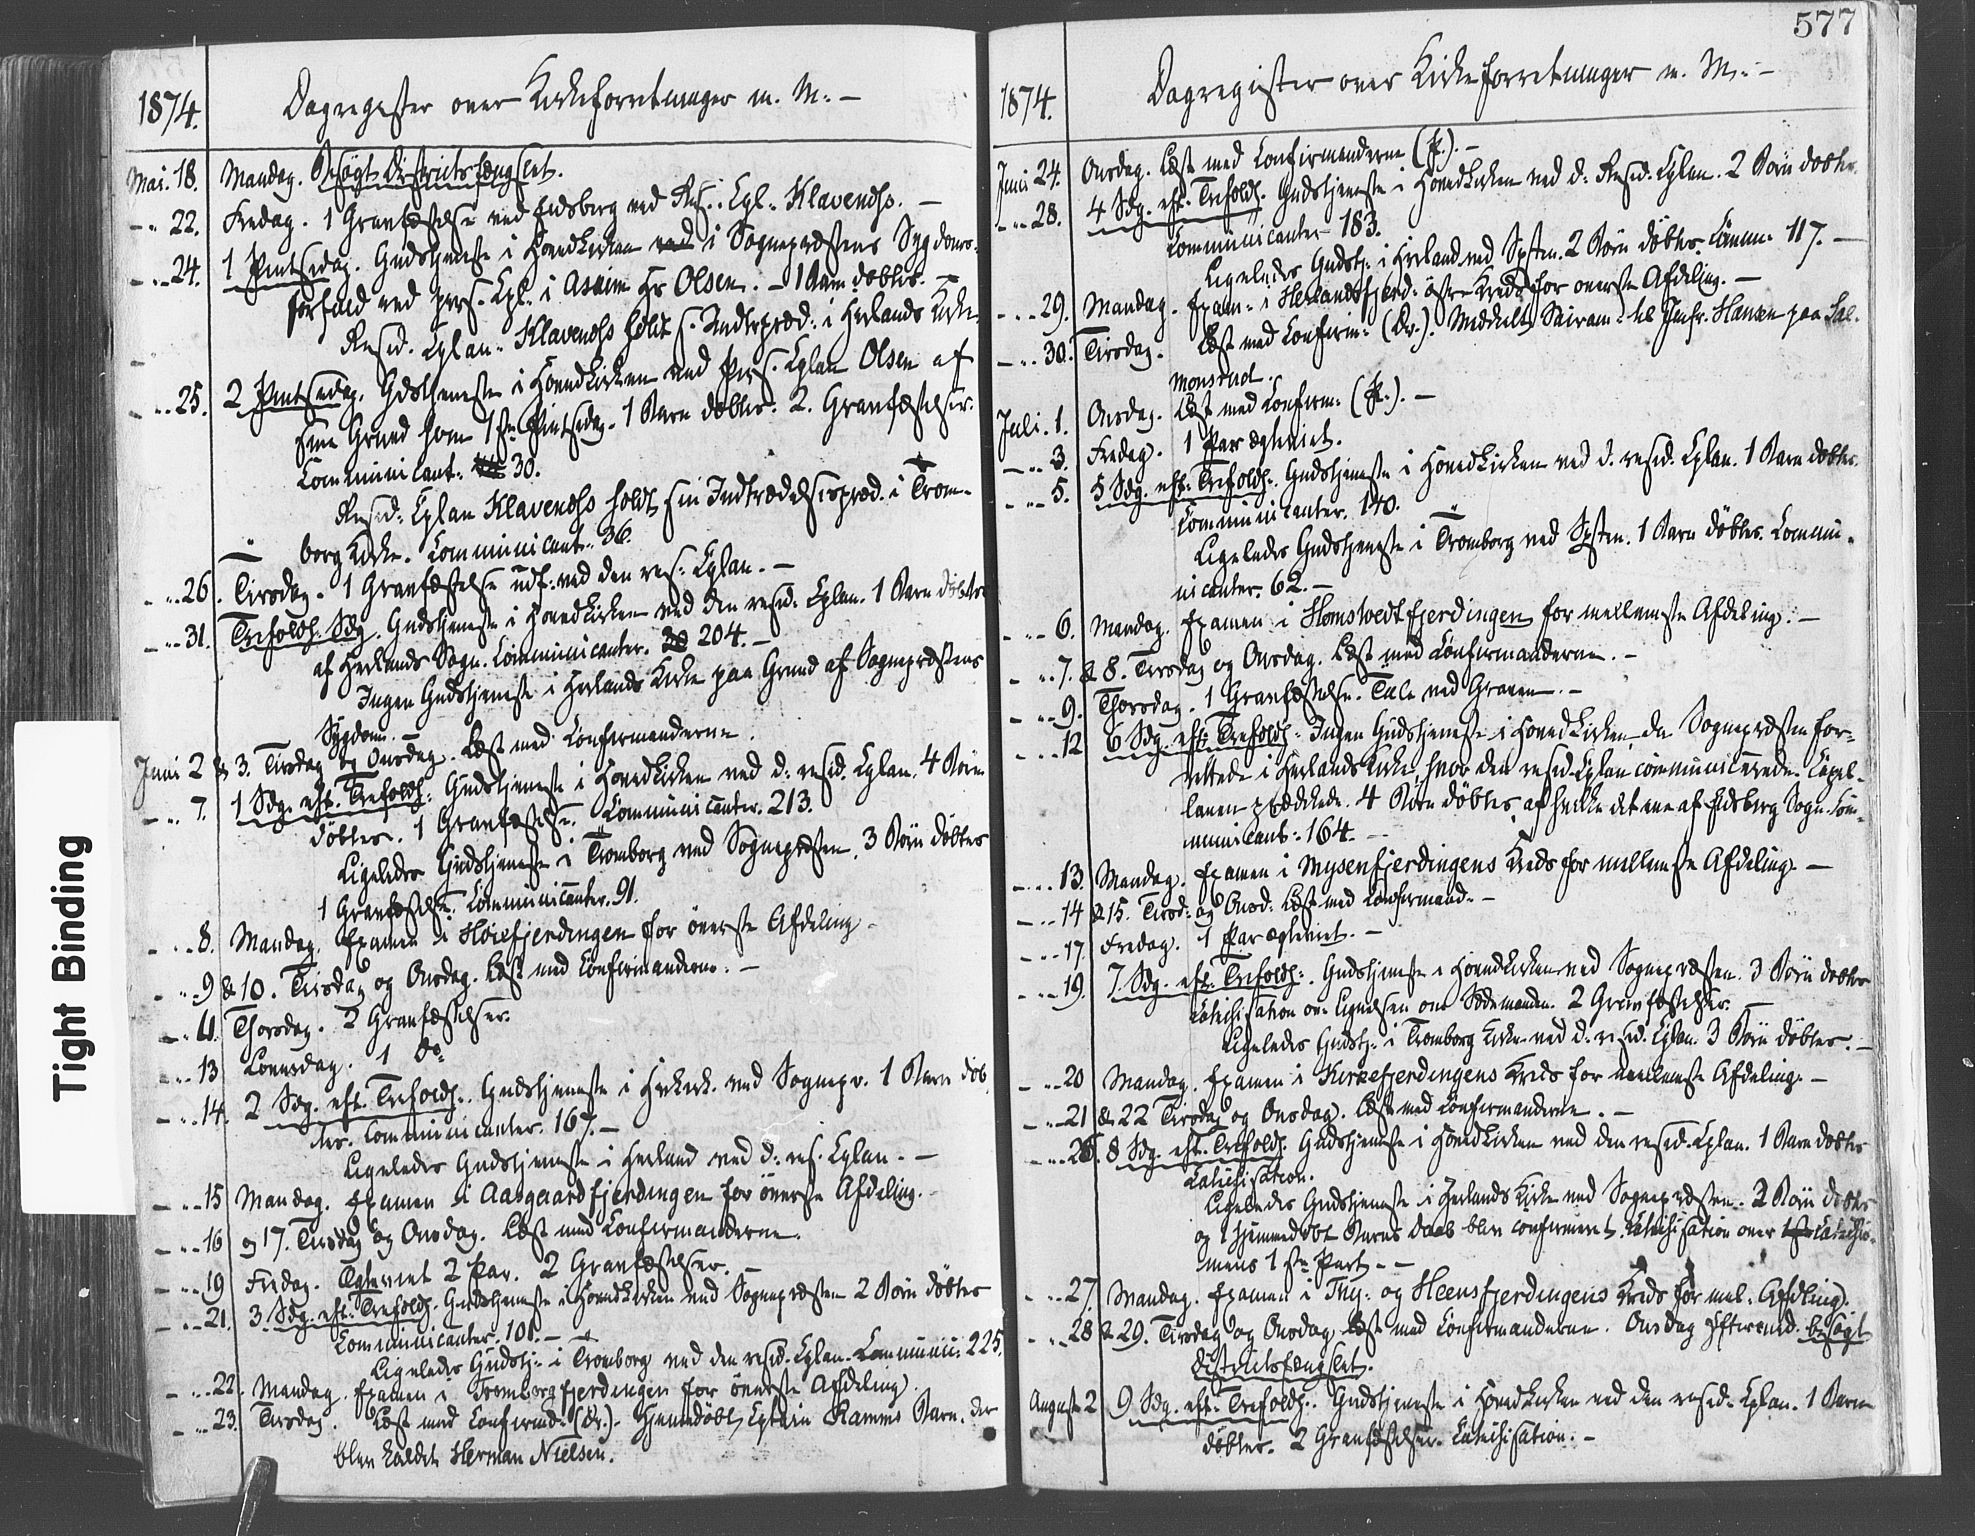 577
1874.
Dagregister over Kirkeforretninger m. M. –
Mai. 18. Mandag. Besøgt Districtsfængslet.
– „ 22. Fredag. 1 Gravfæstelse ved Eidsberg ved Res. Cpl. Klavenæss. –
– „ 24. 1 Pintsedag. Gudstjeneste i Hovedkirken ved i Sognepræstens Sygdoms-
forfald ved pers. Cpl. i Askim Hr Olsen. – 1 Barn døbtes. –
Resid. Cplan. Klavenæss holdt s. Indtrpræd. i Herlands Kirke.
– „ 25. 2 Pintsedag. Gdstjeneste i Hovedkirken ved Pers. Cplan Olsen af
sme Grund som 1ste Pintsedag. 1 Barn døbtes. 2. Gravfæstelser.
Communicant. 30.
Resid. Cplan Klavenæss holdt sin Indtrædelsespræd. i Trøm-
borg Kirke. Communicant. 36.
– „ 26. Tirsdag. 1 Gravfæstelse udf. ved den res. Cplan. –
– „ 31. Trefoldh. Sdg. Gudstjeneste i Hovedkirken ved den resid. Cplan. 1 Barn døbtes
af Herlands Sogn. Communicanter. 30 204. –
Ingen Gudstjeneste i Herlands Kirke paa Grund af Sognepræstens
Sygdom. –
Juni 2 & 3. Tirsdag og Onsdag. Læst med Confirmanderne.
– „ 7. 1 Sdg. eft. Trefoldh. Gudstjeneste i Hovedkirken ved d. resid. Cplan. 4 Børn
døbtes. 1 Gravfæstelse. Communicanter. 213.
Ligeledes Gudstjeneste i Trømborg ved Sognepræsten. 3 Børn døbtes
1 Gravfæstelse. Communicanter. 91.
– „ 8. Mandag. Examen i Høiefjerdingen for øverste Afdeling –
– „ 9 & 10. Tirsdag og Onsdag. Læst med Confirmanderne. –
– „ 11. Thorsdag. 2 Gravfæstelser.
– „ 13 Løverdag. 1 do
– „ 14. 2 Sdg. eft. Trefoldh. Gudstjeneste i Hvkirk. ved Sognepr. 1 Barn døb-
tes. Communicanter. 167. –
Ligeledes Gudstjeneste i Herland ved d. res. Cplan. –
– „ 15 Mandag. Examen i Aasgaardfjerdingen for øverste Afdeling.
– „ 16 og 17. Tirsdag og Onsdag. Læst med Confirmanderne.
– „ 19 Fredag. Egteviet 2 Par. 2 Gravfæstelser. –
– „ 21. 3. Sdg. eft. Trefoldh. Gudstjeneste i Hovedkirken ved Sognepræsten 2 Børn døbtes
Communicanter. 101. –
Ligeledes Gudstj. i Trømborg ved den resid. Cplan. Communic: 225.
– „ 22. Mandag. Examen i Trømborgfjerdingen for øverste Afdeling.
– „ 23. Tirsdag. Læst med Confirmd. (Dr.). Hjemmedøbt Cptein Ramms Barn, der
blev kaldet Herman Nielsen.
1874.
Dagregister over Kirkeforretninger m. M. –
Juni 24. Onsdag. Læst med Confirmanderne (P.). –
– „ 28. 4 Sdg. eft. Trefoldh. Gudstjeneste i Hovedkirken ved d. Resid. Cplan. 2 Børn døbtes.
Communicanter 183.
Ligeledes Gudstj. i Herland ved Spsten. 2 Børn døbtes. Commu. 117. –
– „ 29. Mandag. Exam. i Herlandsfjerd. østre Kreds for øverste Afdeling. –
– „ 30. Tirsdag. Læst med Confirm: (Dr.). Meddelt Sacram. til Jmfr. Hansen paa Sal-
monsrud.
Juli. 1. Onsdag. Læst med Confirm: (P.). –
– „ 3. Fredag. 1 Par ægteviet.
– „ 5. 5 Sdg. eft. Trefoldh. Gudstjeneste i Hovedkirken ved d. resid. Cplan. 1 Barn døbtes.
Communicanter. 140.
Ligeledes Gudstjeneste i Trømborg ved Spsten. 1 Barn døbtes. Commu-
nicanter. 62. –
– „ 6. Mandag. Examen i Homstvedtfjerdingen for mellemste Afdeling. –
– „ 7. & 8. Tirsdag og Onsdag. Læst med Confirmanderne. –
– „ 9. Thorsdag. 1 Gravfæstelse. Tale ved Graven. –
– „ 12 6 Sdg. eft. Trefoldh. Ingen Gudstjeneste i Hovedkirken, da Sognepræsten for-
rettede i Herlands Kirke, hvor den resid. Cplan communicerede. Capel-
lanen prædikede. 4 Børn døbtes af hvilke det ene af Eidsberg Sogn. Com-
municant. 164. –
– „ 13. Mandag. Examen i Mysenfjerdingens Kreds for mellemste Afdeling. –
– „ 14 & 15. Tirsd. og Onsd. Læst med Confirmand. –
– „ 17 Fredag. 1 Par ægteviet. –
– „ 19. 7. Sdg. eft. Trefoldh. Gudstjeneste i Hovedkirken ved Sognepræsten. 3 Børn døbtes
Catechisation ov. Lignelsen om Sædemanden. 2 Gravfæstelser. –
Ligeledes Gudstj. i Trømborg Kirke ved d. resid. Cplan. 3 Børn døbtes. –
– „ 20 Mandag. Examen i Kirkefjerdingens Kreds for mellemste Afdeling. –
– „ 21 & 22 Tirsdag og Onsdag. Læst med Confirmanderne. –
– „ 26. 8 Sdg. eft. Trefoldh. Gudstjeneste i Hovedkirken ved den resid. Cplan. 1 Barn døbtes
Catechisation.
Ligeledes Gudstjeneste i Herlands Kirke ved Sognepræsten. 2 Børn døbtes
og 1 hjemmedøbt Barns Daab blev confirmeret. Catechisation over 1ste Catechis-
mens 1ste Part. –
– „ 27. Mandag. Examen i Ting- og Heensfjerdingens Kreds for mel. Afdling.
– „ 28 & 29. Tirsdag og Onsdag Læst med Confirmanderne. Onsdag Eftermd. besøgt
Districtsfængslet.
August 2 9 Sdg. eft. Trefoldh. Gudstjeneste i Hovedkirken ved den resid. Cplan. 1 Barn
døbtes. 2 Gravfæstelser. Catechisation. –
Tight Binding